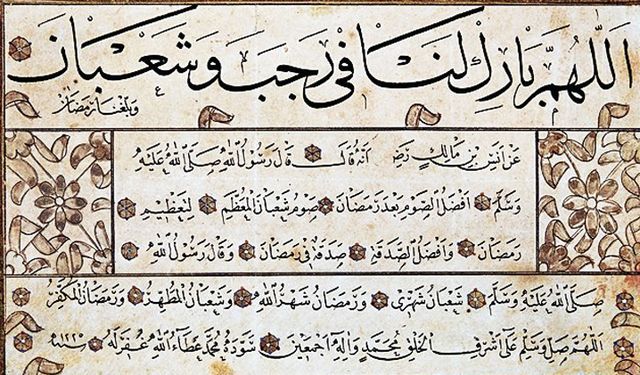 اللهم بارك لنا في رجب وشعبان
وبلغنا رمضان
عن انس بن مالك رضه انه قال قال رسول الله صلى الله عليه
وسلم افضل الصوم بعد رمضان صوم شعبان المعظم لتعظيم
رمضان وافضل الصدقة صدقة في رمضان وقال رسول الله
صلى الله عليه وسلم شعبان شهري ورمضان شهر الله وشعبان المطهر ورمضان المكفر
اللهم صل وسلم على اشرف الخلق محمد واله اجمعين سوده محمد عطاء الله غفر له سنه